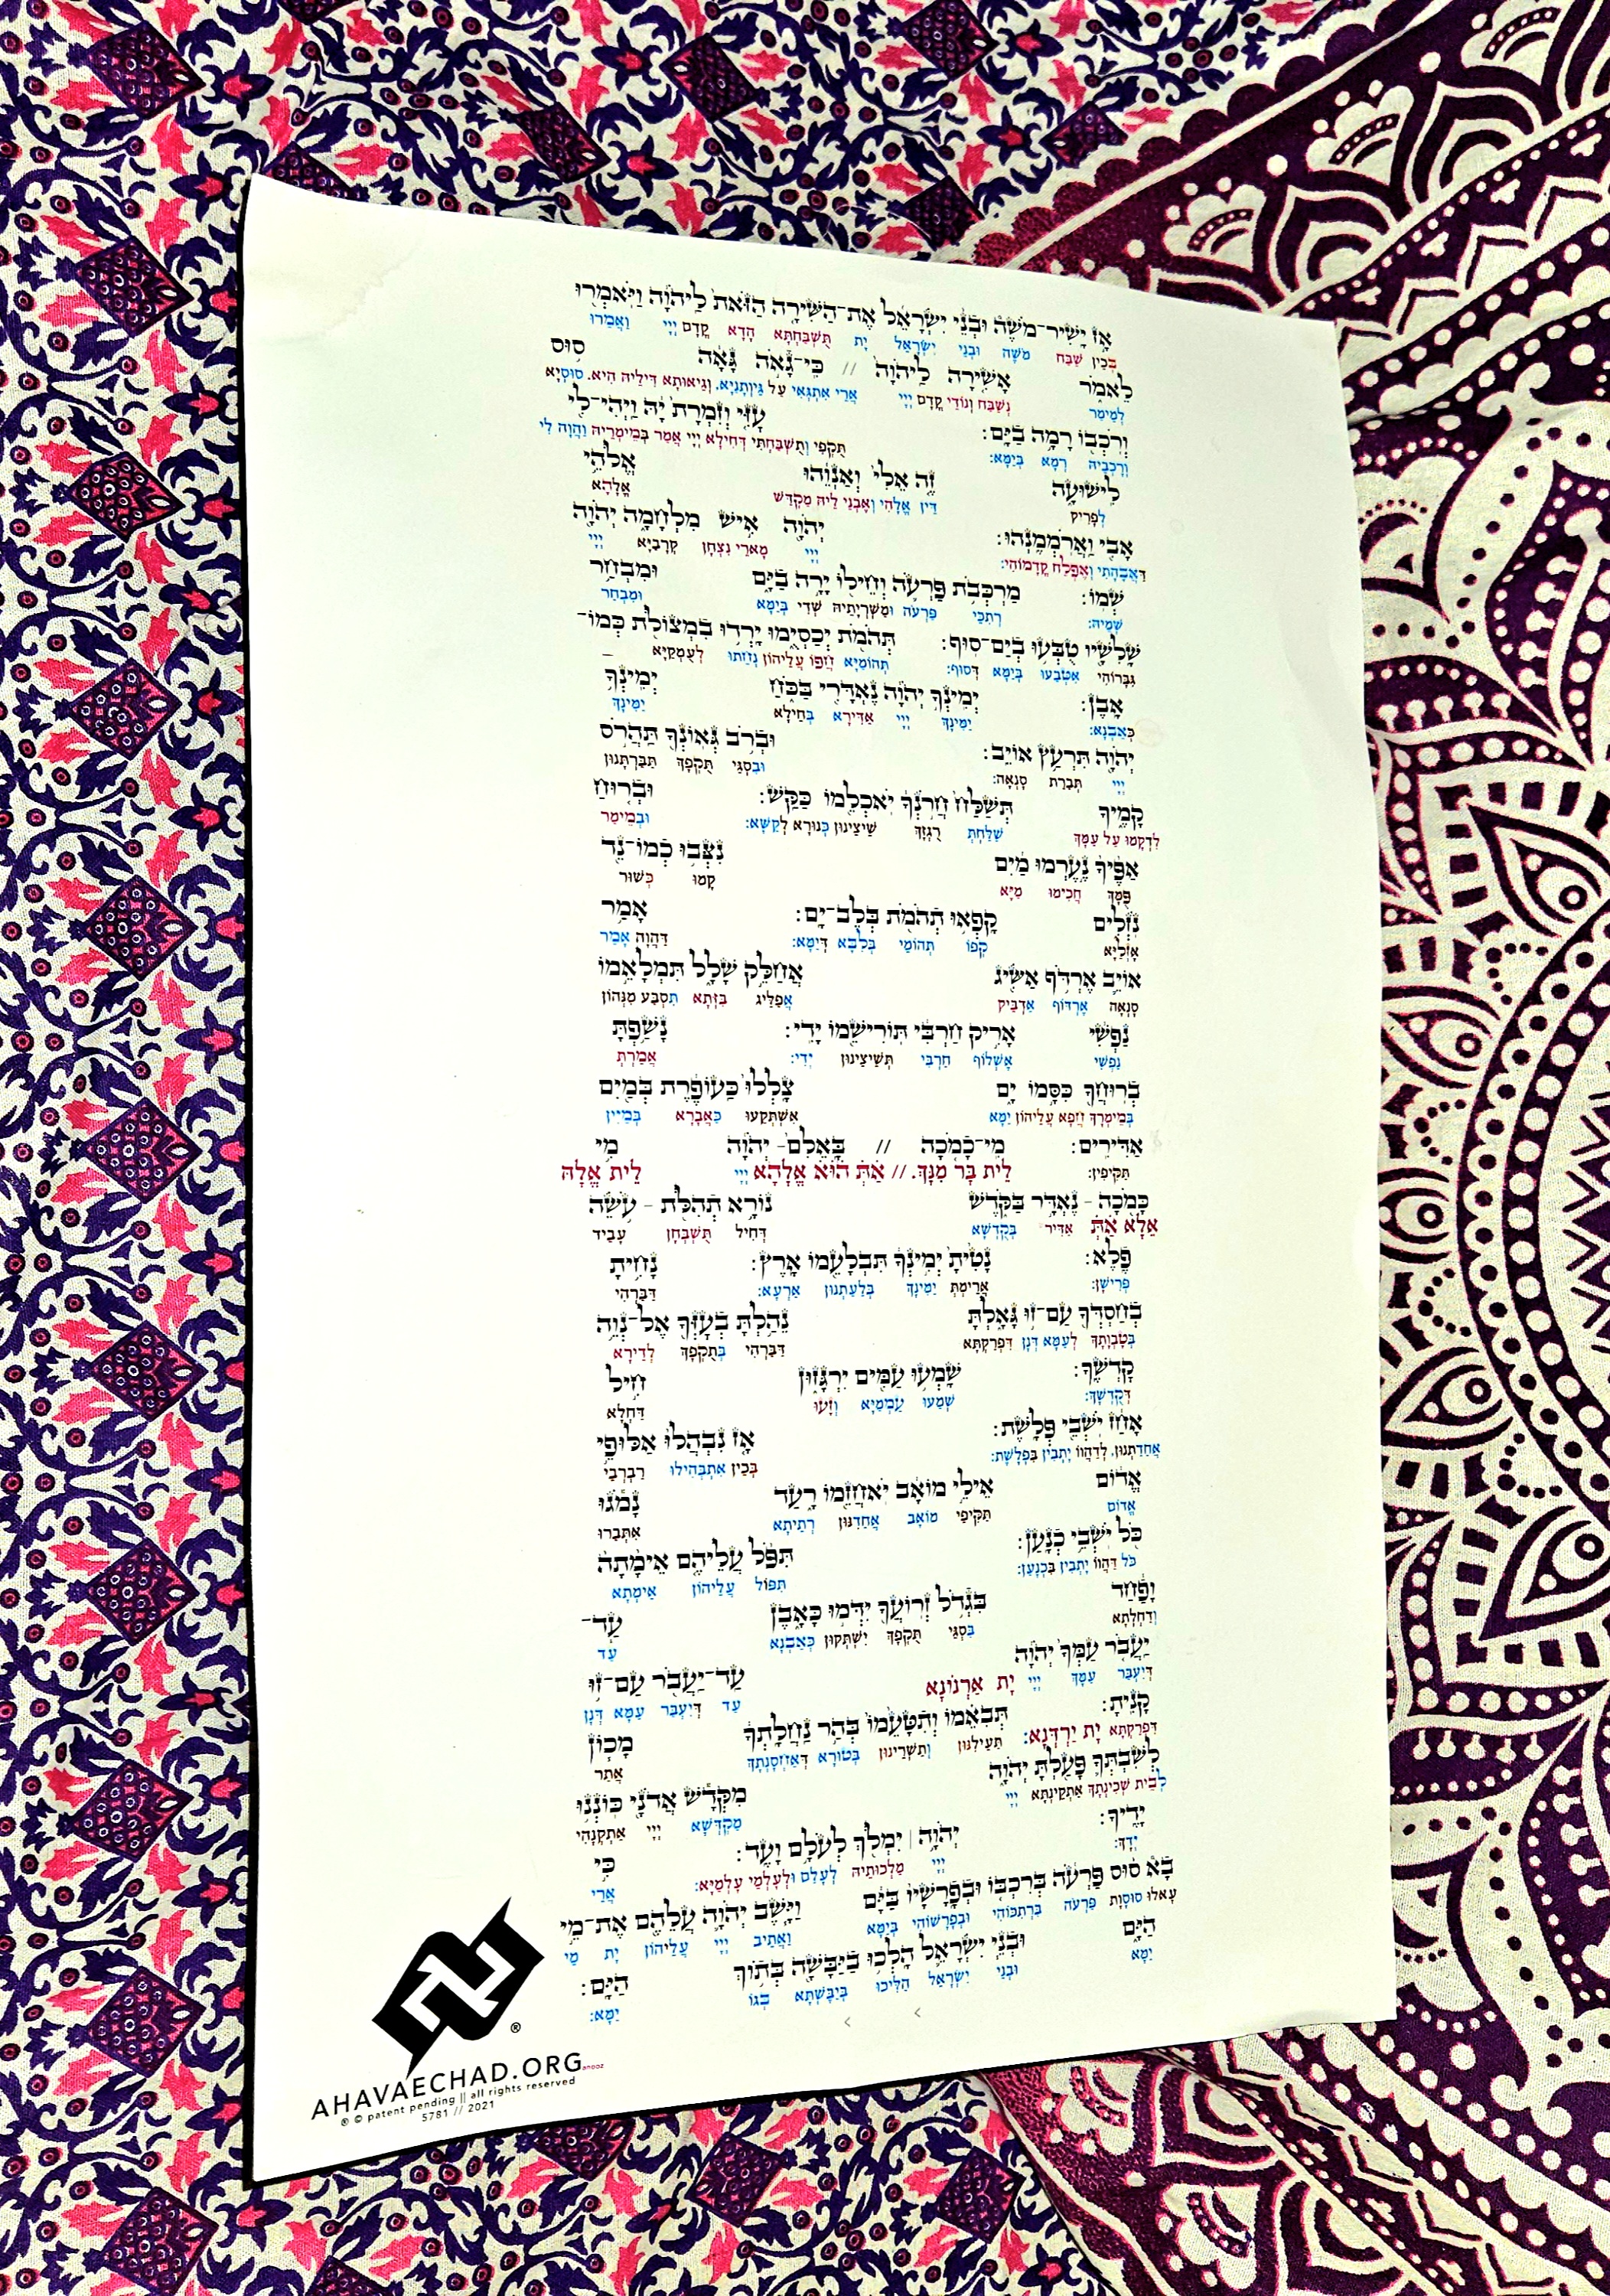 אָ֣ז יָשִֽׁיר־מֹשֶׁה֩ וּבְנֵ֨י יִשְׂרָאֵ֜ל אֶת־הַשִּׁירָ֤ה הַזֹּאת֙ לַֽיהוָ֔ה וַיֹּאמְר֖וּ
בְּכֵין שַׁבַּח מֹשֶׁה וּבְנֵי יִשְׂרָאֵל יָת תֻּשְׁבַּחְתָּא הָדָא קֳדָם יְיָי וַאֲמַרוּ
לֵאמֹ֑ר אָשִׁ֤ירָה לַֽיהוָה֙ // כִּֽי־גָאֹ֣ה גָּאָ֔ה ס֥וּס
לְמֵימַר נְשַׁבַּח וְנוֹדֵי קֳדָם יְיָי אֲרֵי אִתְגְּאִי עַל גֵּיוְתָנַיָּא. וְגֵיאוּתָא דִּילֵיהּ הִיא. סוּסְיָא
וְרֹכְב֖וֹ רָמָ֥ה בַיָּֽם׃ עָזִּ֤י וְזִמְרָת֙ יָ֔הּ וַֽיְהִי־לִ֖י
וְרָכְבֵיהּ רְמָא בְּיַמָּא׃ תֻּקְפִי וְתֻשְׁבַּחְתִּי דְּחִילָא יְיָי אֲמַר בְּמֵימְרֵיהּ וַהֲוָה לִי
לִֽישׁוּעָ֑ה זֶ֤ה אֵלִי֙ וְאַנְוֵ֔הוּ אֱלֹהֵ֥י
לְפָרִיק דֵּין אֱלָהִי וְאֶבְנֵי לֵיהּ מַקְדַּשׁ אֱלָהָא
אָבִ֖י וַאֲרֹמְמֶֽנְהוּ׃ יְהוָ֖ה אִ֣ישׁ מִלְחָמָ֑ה יְהוָ֖ה
דַּאֲבָהָתִי וְאֶפְלַח קֳדָמוֹהִי׃ יְיָי מָארֵי נִצְחָן קְרָבַיָּא יְיָי
שְׁמֽוֹ׃ מַרְכְּבֹ֥ת פַּרְעֹ֛ה וְחֵיל֖וֹ יָרָ֣ה בַיָּ֑ם וּמִבְחַ֥ר
שְׁמֵיהּ׃ רְתִכֵּי פַּרְעֹה וּמַשְׁרְיָתֵיהּ שְׁדִי בְּיַמָּא וּמִבְחַר
שָֽׁלִשָׁ֖יו טֻבְּע֥וּ בְיַם־סֽוּף׃ תְּהֹמֹ֖ת יְכַסְיֻ֑מוּ יָרְד֥וּ בִמְצוֹלֹ֖ת כְּמוֹ־
גִּבָּרוֹהִי אִטְּבַעוּ בְּיַמָּא דְּסוּף׃ תְּהוֹמַיָּא חֲפוֹ עֲלֵיהוֹן נְחַתוּ לְעֻמְקַיָּא
אָֽבֶן׃ יְמִֽינְךָ֣ יְהוָ֔ה נֶאְדָּרִ֖י בַּכֹּ֑חַ יְמִֽינְךָ֥
כְּאַבְנָא׃ יַמִּינָךְ יְיָי אַדִּירָא בְּחֵילָא יַמִּינָךְ
יְהוָ֖ה תִּרְעַ֥ץ אוֹיֵֽב׃ וּבְרֹ֥ב גְּאוֹנְךָ֖ תַּהֲרֹ֣ס
יְיָי תְּבַרַת סָנְאָה׃ וּבִסְגֵי תֻּקְפָּךְ תַּבַּרְתָּנוּן
קָמֶ֑יךָ תְּשַׁלַּח֙ חֲרֹ֣נְךָ֔ יֹאכְלֵ֖מוֹ כַּקַּֽשׁ׃ וּבְר֤וּחַ
לְדָקָמוּ עַל עַמָּךְ שַׁלַּחְתְּ רֻגְזָךְ שֵׁיצֵינוּן כְּנוּרָא לְקַשָּׁא׃ וּבְמֵימַר
אַפֶּ֙יךָ֙ נֶ֣עֶרְמוּ מַ֔יִם נִצְּב֥וּ כְמוֹ־נֵ֖ד
פֻּמָּךְ חֲכִימוּ מַיָּא קָמוּ כְּשׁוּר
נֹזְלִ֑ים קָֽפְא֥וּ תְהֹמֹ֖ת בְּלֶב־יָֽם׃ אָמַ֥ר
אָזְלַיָּא קְפוֹ תְּהוֹמֵי בְּלִבָּא דְּיַמָּא׃ דַּהֲוָה אָמַר
אוֹיֵ֛ב אֶרְדֹּ֥ף אַשִּׂ֖יג אֲחַלֵּ֣ק שָׁלָ֑ל תִּמְלָאֵ֣מוֹ
סָנְאָה אֶרְדּוֹף אַדְבֵּיק אֲפַלֵּיג בִּזְּתָא תִּסְבַּע מִנְּהוֹן
נַפְשִׁ֔י אָרִ֣יק חַרְבִּ֔י תּוֹרִישֵׁ֖מוֹ יָדִֽי׃ נָשַׁ֥פְתָּ
נַפְשִׁי אֶשְׁלוֹף חַרְבִּי תְּשֵׁיצֵינוּן יְדִי׃ אֲמַרְתְּ
בְרוּחֲךָ֖ כִּסָּ֣מוֹ יָ֑ם צָֽלֲלוּ֙ כַּֽעוֹפֶ֔רֶת בְּמַ֖יִם
בְּמֵימְרָךְ חֲפָא עֲלֵיהוֹן יַמָּא אִשְׁתְּקַעוּ כַּאֲבָרָא בְּמַיִין
אַדִּירִֽים׃ מִֽי־כָמֹ֤כָה // בָּֽאֵלִם֙ - יְהוָ֔ה מִ֥י
תַּקִּיפִין׃ לֵית בָּר מִנָּךְ. // אַתְּ הוּא אֱלָהָא יְיָי לֵית אֱלָהּ
כָּמֹ֖כָה - נֶאְדָּ֣ר בַּקֹּ֑דֶשׁ נוֹרָ֥א תְהִלֹּ֖ת - עֹ֥שֵׂה
אֶלָּא אַתְּ אַדִּיר בְּקֻדְשָׁא דְּחִיל תֻּשְׁבְּחָן עָבֵיד
פֶֽלֶא׃ נָטִ֙יתָ֙ יְמִ֣ינְךָ֔ תִּבְלָעֵ֖מוֹ אָֽרֶץ׃ נָחִ֥יתָ
פְּרִישָׁן׃ אֲרֵימְתְּ יַמִּינָךְ בְּלַעַתְנוּן אַרְעָא׃ דַּבַּרְהִי
בְחַסְדְּךָ֖ עַם־ז֣וּ גָּאָ֑לְתָּ נֵהַ֥לְתָּ בְעָזְּךָ֖ אֶל־נְוֵ֥ה
בְּטַבְוָתָךְ לְעַמָּא דְּנָן דִּפְרַקְתָּא דַּבַּרְהִי בְּתֻקְפָּךְ לְדֵירָא
קָדְשֶֽׁךָ׃ שָֽׁמְע֥וּ עַמִּ֖ים יִרְגָּז֑וּן חִ֣יל
דְּקֻדְשָׁךְ׃ שְׁמַעוּ עַמְמַיָּא וְזָעוּ דַּחְלָא
אָחַ֔ז יֹשְׁבֵ֖י פְּלָֽשֶׁת׃ אָ֤ז נִבְהֲלוּ֙ אַלּוּפֵ֣י
אֲחַדַתְנוּן. לְדַהֲווֹ יָתְבִין בִּפְלָשֶׁת׃ בְּכֵין אִתְבְּהִילוּ רַבְרְבֵי
אֱד֔וֹם אֵילֵ֣י מוֹאָ֔ב יֹֽאחֲזֵ֖מוֹ רָ֑עַד נָמֹ֕גוּ
אֱדוֹם תַּקִּיפֵי מוֹאָב אֲחַדִנּוּן רְתֵיתָא אִתְּבַרוּ
כֹּ֖ל יֹשְׁבֵ֥י כְנָֽעַן׃ תִּפֹּ֨ל עֲלֵיהֶ֤ם אֵימָ֙תָה֙
כֹּל דַּהֲווֹ יָתְבִין בִּכְנָעַן׃ תִּפּוֹל עֲלֵיהוֹן אֵימְתָא
וָפַ֔חַד בִּגְדֹ֥ל זְרוֹעֲךָ֖ יִדְּמ֣וּ כָּאָ֑בֶן עַד־
וְדַחְלְתָא בִּסְגֵי תֻּקְפָּךְ יִשְׁתְּקוּן כְּאַבְנָא עַד
יַעֲבֹ֤ר עַמְּךָ֙ יְהוָ֔ה עַֽד־יַעֲבֹ֖ר עַם־ז֥וּ
דְּיִעְבַּר עַמָּךְ יְיָי יָת אַרְנוֹנָא עַד דְּיִעְבַּר עַמָּא דְּנָן
קָנִֽיתָ׃ תְּבִאֵ֗מוֹ וְתִטָּעֵ֙מוֹ֙ בְּהַ֣ר נַחֲלָֽתְךָ֔ מָכ֧וֹן
דִּפְרַקְתָּא יָת יַרְדְּנָא׃ תַּעֵילִנּוּן וְתַשְׁרֵינוּן בְּטוּרָא דְּאַחְסָנְתָךְ אֲתַר
לְשִׁבְתְּךָ֛ פָּעַ֖לְתָּ יְהוָ֑ה מִקְּדָ֕שׁ אֲדֹנָ֖י כּוֹנְנ֥וּ
לְבֵית שְׁכִינְתָךְ אַתְקֵינְתָּא יְיָי מַקְדְּשָׁא יְיָי אַתְקְנָהִי
יָדֶֽיךָ׃ יְהוָ֥ה׀ יִמְלֹ֖ךְ לְעֹלָ֥ם וָעֶֽד׃ כִּ֣י
יְדָךְ׃ יְיָי מַלְכוּתֵיהּ לְעָלַם וּלְעָלְמֵי עָלְמַיָּא׃ אֲרֵי
בָא֩ ס֨וּס פַּרְעֹ֜ה בְּרִכְבּ֤וֹ וּבְפָרָשָׁיו֙ בַּיָּ֔ם וַיָּ֧שֶׁב יְהוָ֛ה עֲלֵהֶ֖ם אֶת־מֵ֣י
עָאלוּ סוּסָוָת פַּרְעֹה בִּרְתִכּוֹהִי וּבְפָרָשׁוֹהִי בְּיַמָּא וַאֲתֵיב יְיָי עֲלֵיהוֹן יָת מֵי
הַיָּ֑ם וּבְנֵ֧י יִשְׂרָאֵ֛ל הָלְכ֥וּ בַיַּבָּשָׁ֖ה בְּת֥וֹךְ הַיָּֽם׃
יַמָּא וּבְנֵי יִשְׂרָאֵל הַלִּיכוּ בְּיַבֶּשְׁתָּא בְּגוֹ יַמָּא׃
®
AHAVAECHAD.ORG
® © patent pending || all rights reserved
5781 // 2021